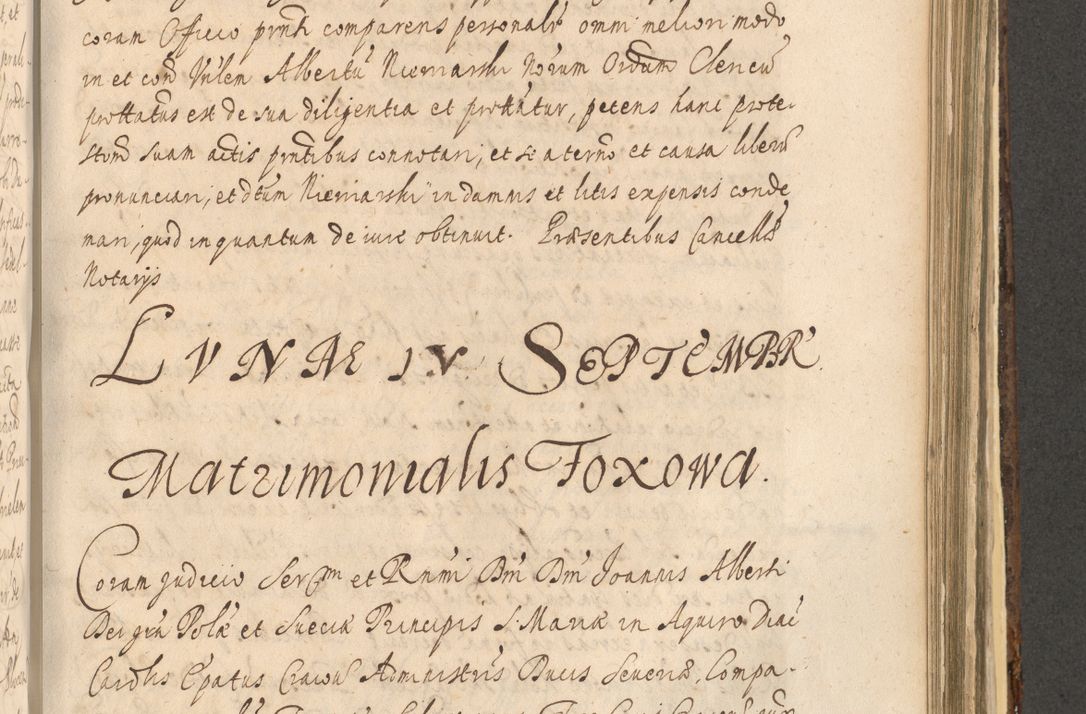 coram Officio prnti comparens personalr omni meliori modo
in et cond Vnlem Albertu Niemarski Norum Ordum Clericu
prottatus est de sua diligentia et prottatur, petens hanc prote-
stond suam actis prntibus connotari, et se a termo et causa liberu
pronunciari, et dtum Niemarski in damnis et litis expensis conde
mari, quod in quantum de iure obtinuit. Præsentibus Cancells
Notarijs
LVNAE IV SEPTEMBR
Matrimonialis Foxowa.
Coram judicio Sermi et Rnmi Dni Dni Joannis Alberti
Dei gra Polæ et Sueciæ Principis S. Mariæ in Aquiro Diac
Cardlis Epatus Cracov Administris Ducis Severiæ, Compa-